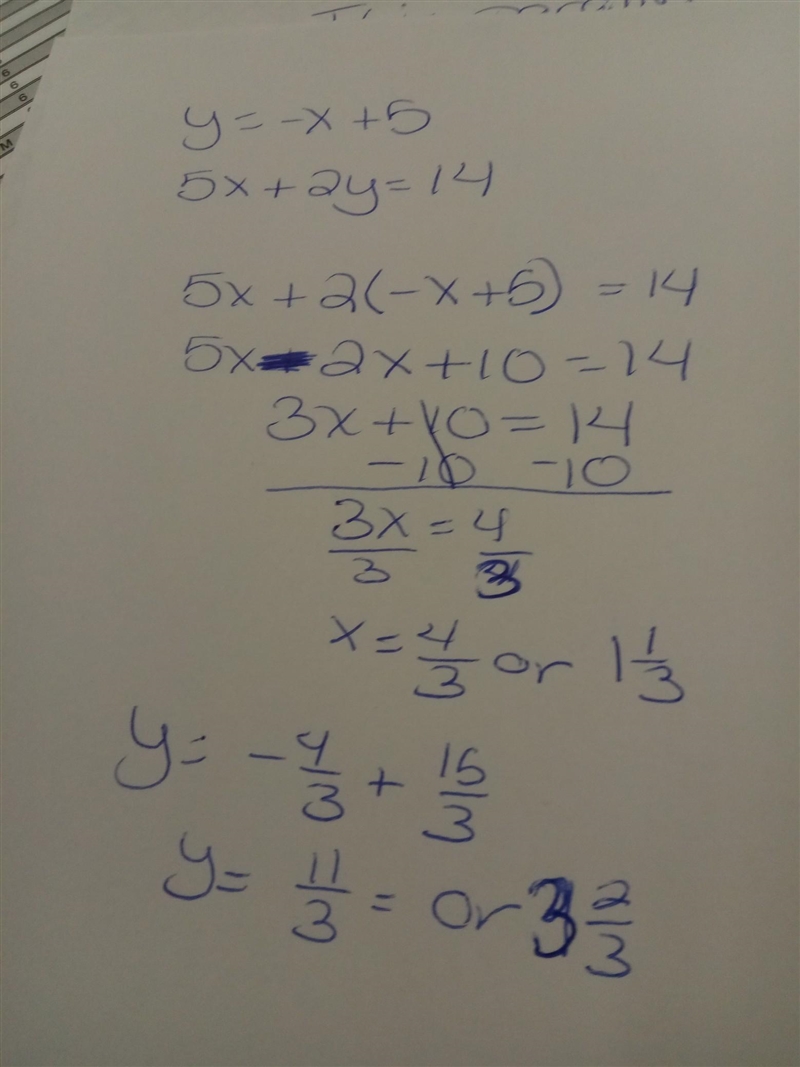 y = -x + 5
5x + 2y = 14
5x + 2(-x + 5) = 14
5x - 2x + 10 = 14
3x + 10 = 14
-10 -10
3x/3 = 4/3
x = 4/3 or 1 1/3
y = -4/3 + 15/3
y = 11/3 = or 3 2/3